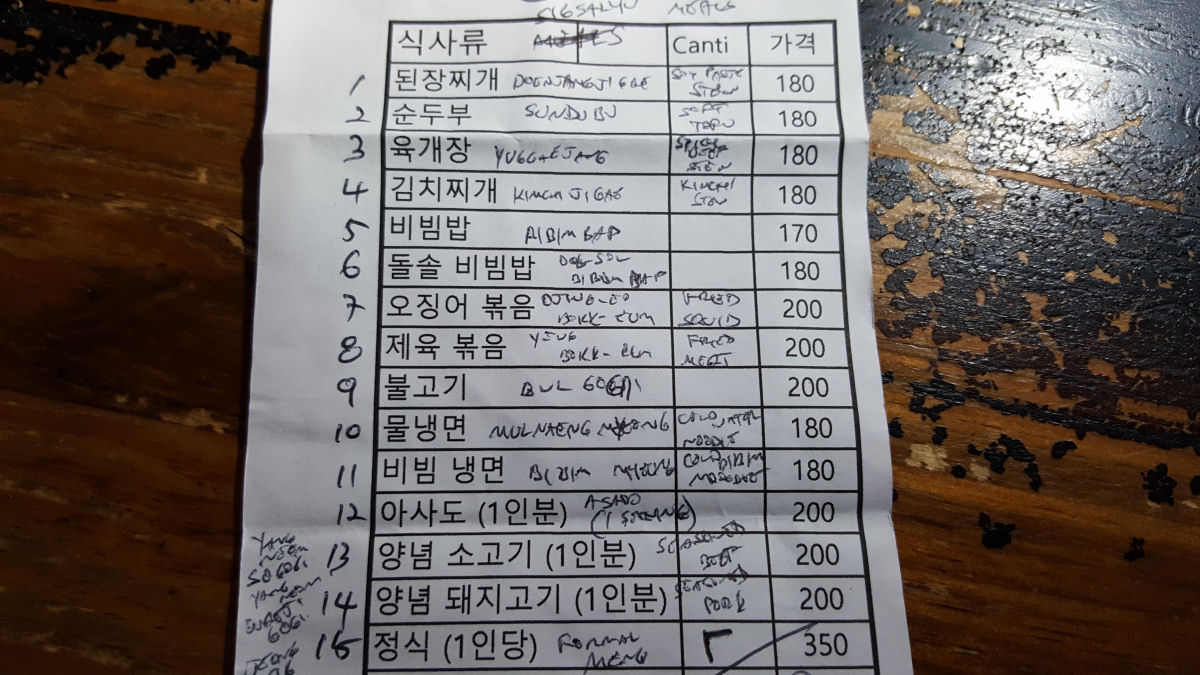 SIGSALYU MEALS
식사류 Canti 가격
1 된장찌개 DOENJANGJIGAE SOY PASTE STEW 180
2 순두부 SUNDUBU SOFT TOFU 180
3 육개장 YUGGAEJANG SPICY BEEF STEW 180
4 김치찌개 KIMCHI JIGAE KIMCHI STEW 180
5 비빔밥 BIBIMBAP 170
6 돌솔 비빔밥 DOL-SOL BIBIMBAP 180
7 오징어 볶음 OJING-EO BOKK-EUM FRIED SQUID 200
8 제육 볶음 BOKK-EUM FRIED MEAT 200
9 불고기 BULGOGI 200
10 물냉면 MULNAENG MYEONG COLD WATER NOODLE 180
11 비빔 냉면 BIBIM COLD BIBIM 180
12 아사도 (1인분) ASADO (1 SERVING) 200
13 양념 소고기 (1인분) SEASONED BEEF 200
14 양념 돼지고기 (1인분) SEASONED PORK 200
15 정식 (1인당) FORMAL MENG 350
YANG NEOM SOGOGI
YANG NEOM
GOGI
JEONG